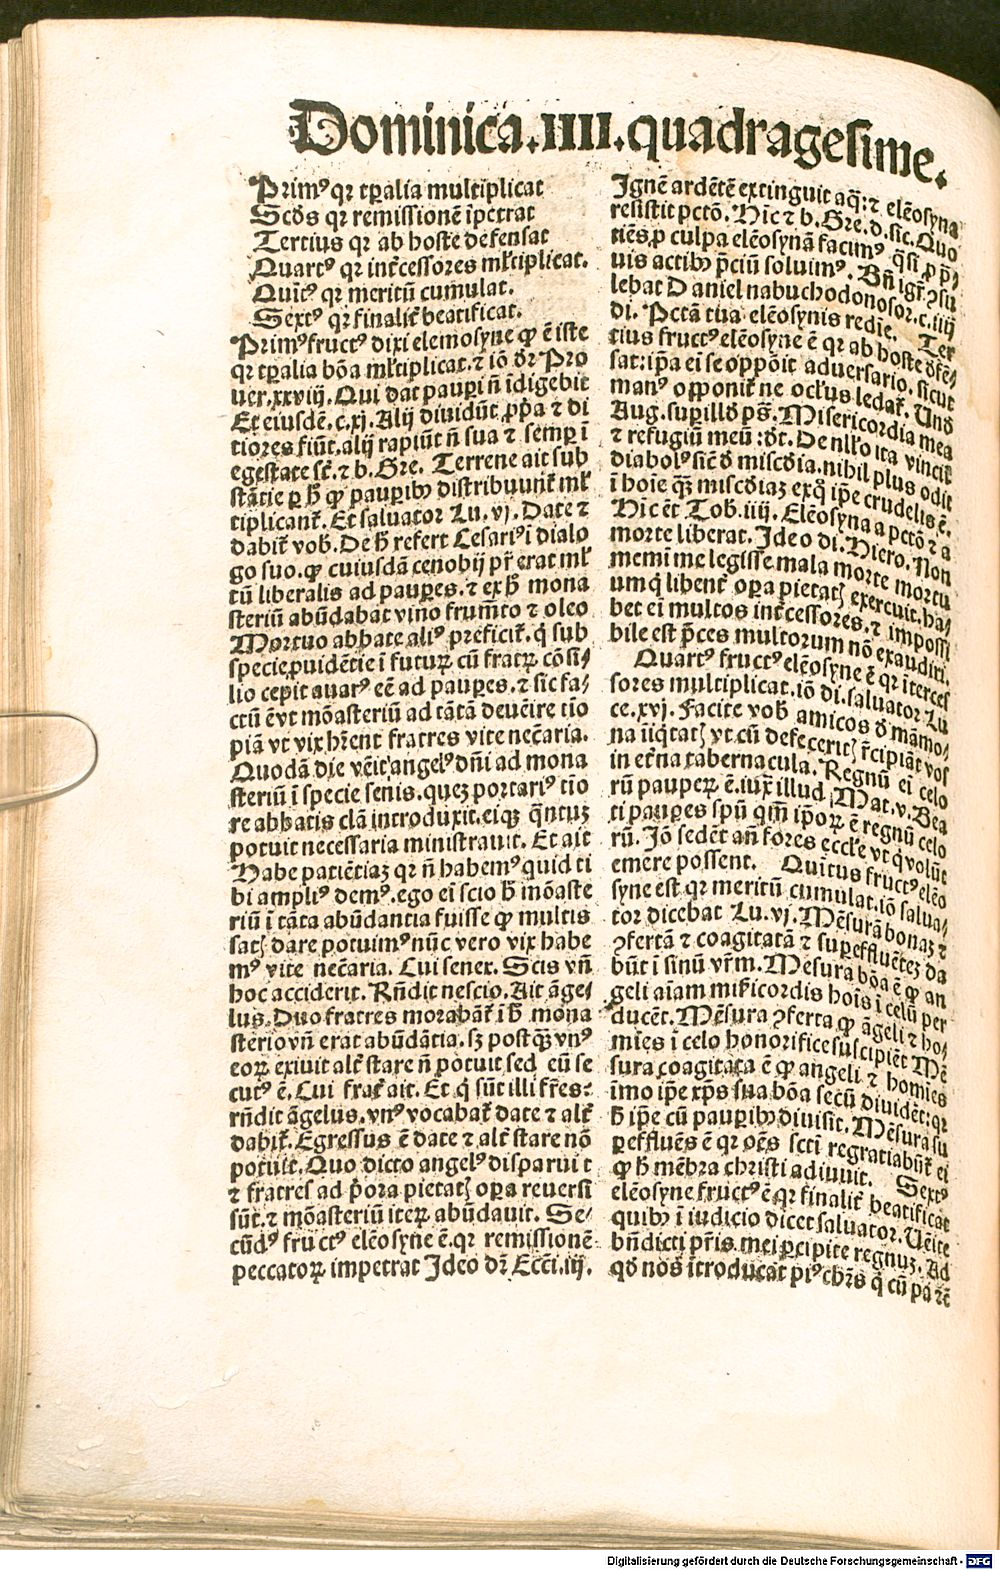 Dominica.IIII.quadragesime.
Primꝰ qꝛ tꝑalia multiplicat
Scds qꝛ remissionē īpetrat
Tertius qꝛ ab hoste defensat
Quartꝰ qꝛ int̄cessores ml̄tiplicat.
Quītꝰ qꝛ meritū cumulat.
Sextꝰ qꝛ finalit̄ beatificat.
Primꝰ fructꝰ dixi elemosyne ꝙ ē iste
qꝛ tꝑalia bōa ml̄tiplicat.⁊ iō dr̄ Pro
uer.xxviij. Qui dat pauꝑi n̄ īdigebit
Et eiusdē.c.xj. Alij diuidūt ꝓpa ⁊ di
tiores fiūt.alij rapiūt n̄ sua ⁊ semꝑ ī
egestate st̄.⁊ b. Gre. Terrene ait sub
stātie ꝑ h̄ ꝙ pauꝑibꝫ distribuunt̄ ml̄
tiplicant̄. Et saluator Lu.vj. Date ⁊
dabit̄ vob̄. De h̄ refert Cesariꝰ ī dialo
go suo.ꝙ cuiusdā cenobij pr̄ erat ml̄
tū liberalis ad pauꝑes.⁊ ex h̄ mona
steriū abūdabat vino frum̄to ⁊ oleo
Mortuo abbate aliꝰ p̄ficit̄.q̇ sub
specie ꝓuidētie ī futuꝝ cū fratꝝ cōsi⸗
lio cepit auarꝰ eē ad pauꝑes.⁊ sic fa⸗
ctū ē vt mōasteriū ad tātā deuēire īo
piā vt vix hr̄ent fratres vite nec̄aria.
Quodā die vēit angelꝰ dn̄i ad mona
steriū ī specie senis.quez portariꝰ tīo
re abbatis clā introduxit.eiqꝫ q̄ntuz
potuit necessaria ministrauit. Et ait
Habe patiētiaz qꝛ n̄ habemꝰ quid ti
bi ampliꝰ demꝰ.ego ei scio h̄ mōaste
riū ī tāta abūdantia fuisse ꝙ multis
satꝭ dare potuimꝰ nūc vero vix habe
mꝰ vite nec̄aria. Cui senex. Scis vn̄
hoc acciderit. Rn̄dit nescio. Ait āge⸗
lus. Duo fratres morabāt̄ ī h̄ mona
sterio vn̄ erat abūdātia.sꝫ postqꝫ vnꝰ
eoꝝ exiuit alt̄ stare n̄ potuit sed eū se
cutꝰ ē. Cui frat̄ ait. Et q̇ sūt illi fr̄es:
rn̄dit āgelus.vnꝰ vocabat̄ date ⁊ alt̄
dabit̄. Egressus ē date ⁊ alt̄ stare nō
potuit. Quo dicto angelꝰ disparuit
⁊ fratres ad p̄ora pietatꝭ oꝑa reuersi
sūt.⁊ mōasteriū iteꝝ abūdauit. Se⸗
cūdꝰ fructꝰ elēosyne ē.qꝛ remissionē
peccatoꝝ impetrat Ideo dr̄ Ecci.iij.
Ignē ardētē extinguit aq̄:⁊ elēosyna
resistit pctō. Hīc ⁊ b. Gre.d.sic. Quo
tiēs ꝓ culpa elēosynā facimꝰ q̄si ꝓ p̄⸗
uis actibꝫ p̄ciū soluimꝰ. Bn̄ igr̄ ꝯsu
lebat Daniel nabuchodonosor.c.iiij
di. Pctā tua elēosynis redie. Ter
tius fructꝰ elēosyne ē qꝛ ab hoste dēfe⸗
sat:ip̄a ei se oppōit aduersario.sicut
manꝰ opponit̄ ne oclꝰus ledat̄. Und
Aug.suꝑ illd pš. Misericordia mea
⁊ refugiū meū:dt̄. De nl̄lo ita vincit̄
diabolꝰ sic̄ d miscd̄ia.nihil plus odit
ī hoīe qꝫ miscd̄iaz ex q̇ ip̄e crudelis ē.
Hīc et Tob̄.iiij. Elēosyna a pctō ⁊ a
morte liberat. Ideo di. Hiero. Non
memī me legisse mala morte mortu
um q̇ libent̄ oꝑa pietatꝭ exercuit.ha⸗
bet ei multos int̄cessores.⁊ impossi
bile est p̄ces multorum nō exaudiri.
Quartꝰ fructꝰ elēosyne ē qꝛ īterces
sores multiplicat.iō di.saluator Lu
ce.xvj. Facite vob̄ amicos d māmo⸗
na iīq̇tatꝭ vt cū defeceritꝭ r̄cipiāt vos
in et̄na tabernacula. Regnū ei celo
rū pauꝑeꝝ ē.iux̄ illud Mat.v. Bea
ti pauꝑes spū qm̄ ip̄oꝝ ē regnū celo
rū. Iō sedēt an̄ fores eccl̄e vt q̇ volūt
emere possent. Quītus fructꝰ elēo
syne est qꝛ meritū cumulat.iō salua⸗
tor dicebat Lu.vj. Mēsurā bonaz ⁊
ꝯfertā ⁊ coagitatā ⁊ suꝑeffluētez da
būt ī sinū vr̄m. Mesura bōa ē ꝙ an
geli aīam mīr̄icordis hoīs ī celū per
ducēt. Mēsura ꝯferta ꝙ āgeli ⁊ ho⸗
mīes ī celo honorifice suscipiēt Mē
sura coagitata ē ꝙ angeli ⁊ homīes
īmo ip̄e xp̄s sua bōa secū diuidēt:qꝛ
h̄ ip̄e cū pauꝑibꝫ diuisit. Mēsura su
ꝑeffluēs ē qꝛ oēs scti regratiabūt̄ ei
ꝙ h̄ mēbra christi adiuuit. Sextꝰ
elēosyne fructꝰ ē qꝛ finalit̄ beatificat
quibꝫ ī iudicio dicet saluator. Uēite
bn̄dicti pr̄is mei ꝑcipite regnuz. Ad
qd nos ītroducat piꝰ chr̄s q̇ cū pa rē
Digitalisierung gefördert durch die Deutsche Forschungsgemeinschaft - DFG